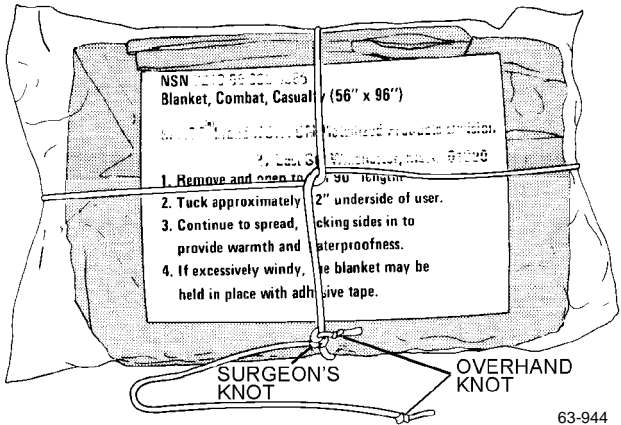 NSN
Blanket, Combat, Casualty (56" x 96")
Division
1. Remove and open to 96" length
2. Tuck approximately 2" underside of user.
3. Continue to spread, cking sides in to
provide warmth and aterproofness.
4. If excessively windy, e blanket may be
held in place with adh sive tape.
SURGEON'S
KNOT
OVERHAND
KNOT
63-944